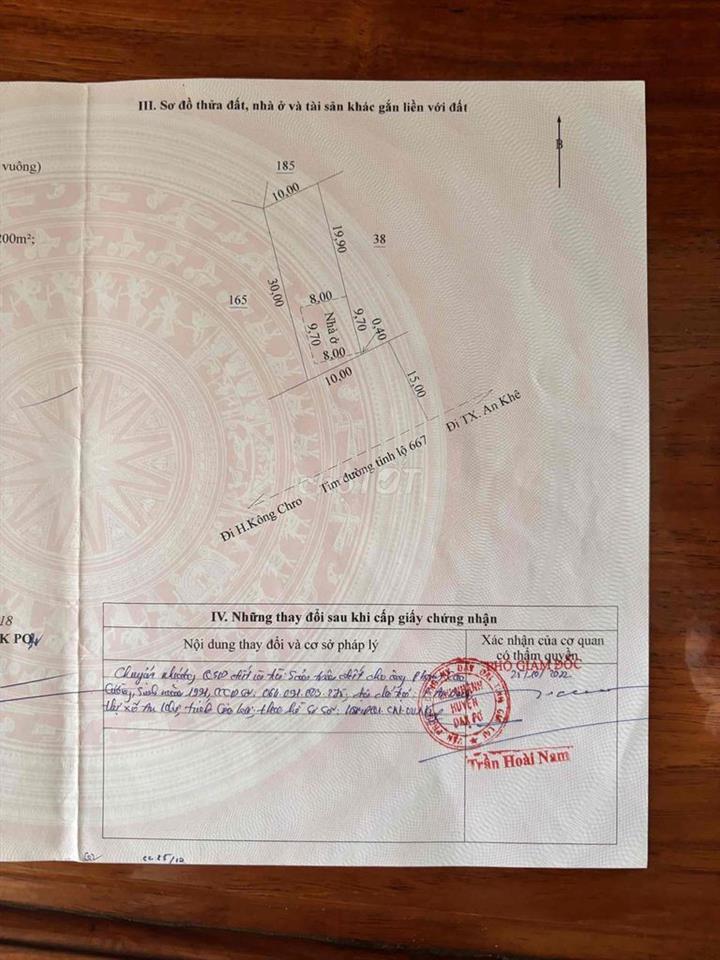 III. Sơ đồ thửa đất, nhà ở và tài sản khác gắn liền với đất
B
vuông)
200m²;
185
10,00
19,90
38
30,00
165
8,00
Nhà ở
9,70
9,70
0,40
8,00
10,00
15,00
Đi TX. An Khê
Tim đường tỉnh lộ 667
Đi H.Kông Chro
18
K PƠ
IV. Những thay đổi sau khi cấp giấy chứng nhận
Nội dung thay đổi và cơ sở pháp lý
Xác nhận của cơ quan
có thẩm quyền
PHÓ GIÁM ĐỐC
25/10/2022
Chuyển nhượng QSD đất và tài sản trên đất cho ông
sinh năm 1991, CCCD số: 064.091.023.275,
thị xã An Khê, tỉnh Gia Lai; theo hồ sơ số:
HUYỆN
ĐAK PƠ
Trần Hoài Nam
cc 25/10